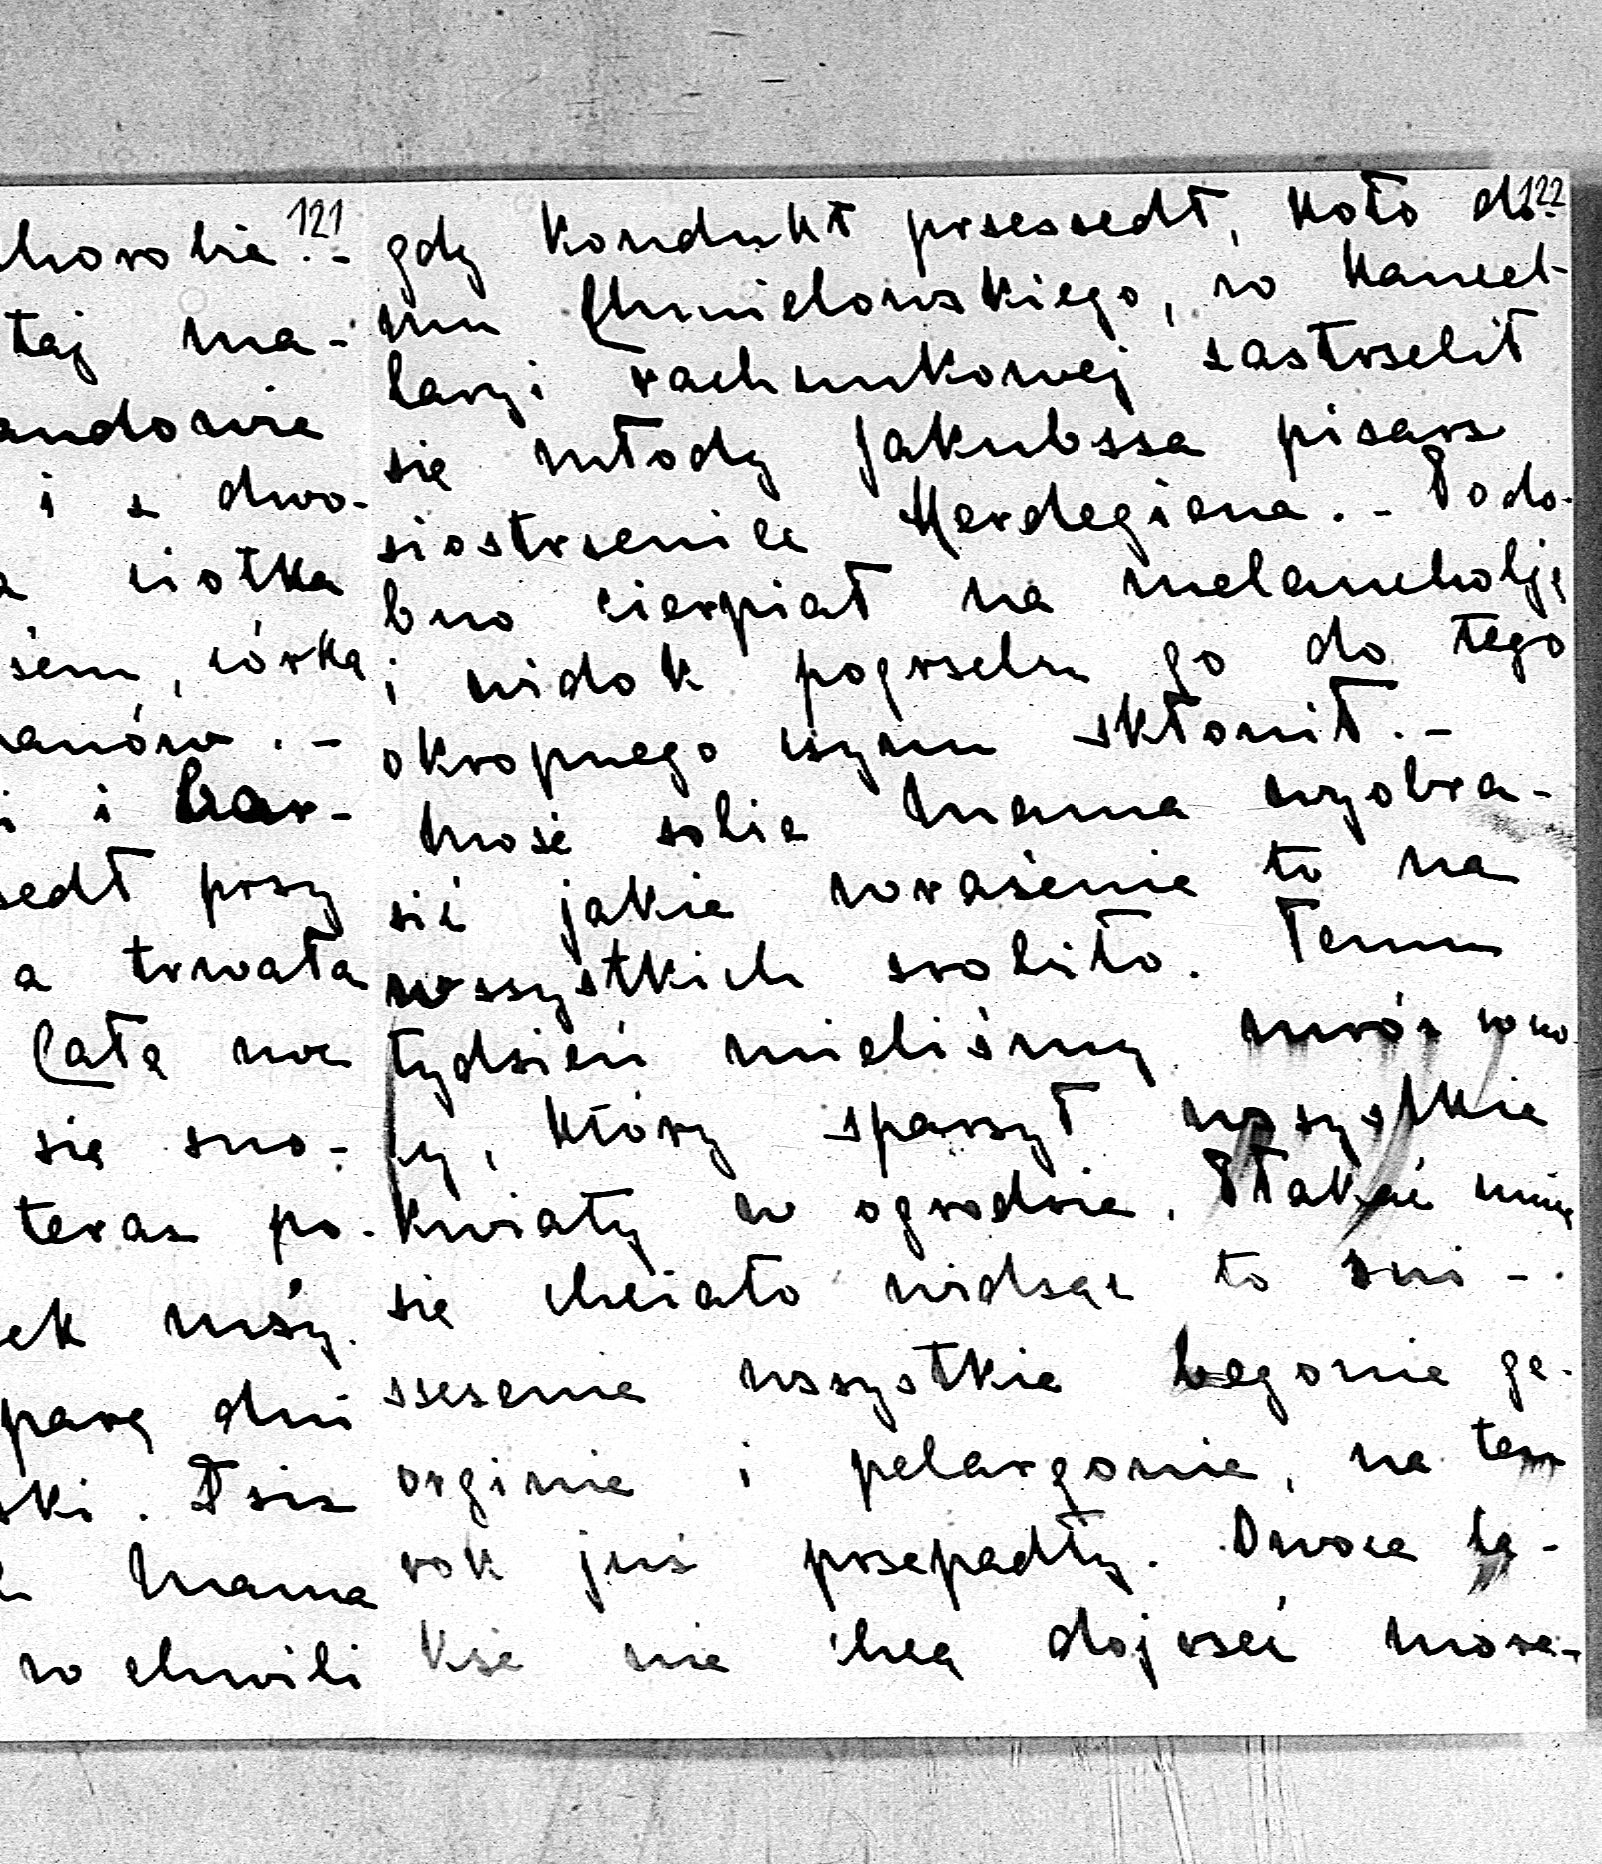 121
chorobie.-
taj ma-
andowie
i z dwo-
a ciotka
sem, córką
ranów.-
i i bar-
sedł przy
a trwała
Całą noc
się zno-
teraz po-
ek niży.
parę dni
ski. Dziś
Mama
w chwili
122
gdy kondukt przeszedł, koło do-
mu Chmielowskiego, w kancel-
laryi rachunkowej zastrzelił
się młody Jakubsza pisarz
siostrzeniec Merdegiena.- Podo-
bno cierpiał na melancholję
i widok pogrzebu go do tego
okropnego czynu skłonił.-
Może sobie Mama wyobra-
zić jakie wrażenie to na
wszystkich zrobiło. Temu
tydzień mieliśmy mróz w no-
cy, który sparzył wszystkie
kwiaty w ogrodzie. Płakać mnię
się chciało widząc to zni-
szczenie wszystkie begonie ge-
orginie i pelargonie, na ten
rok już przepadły. Owoce ta-
kże nie chcą dojrzeć more-